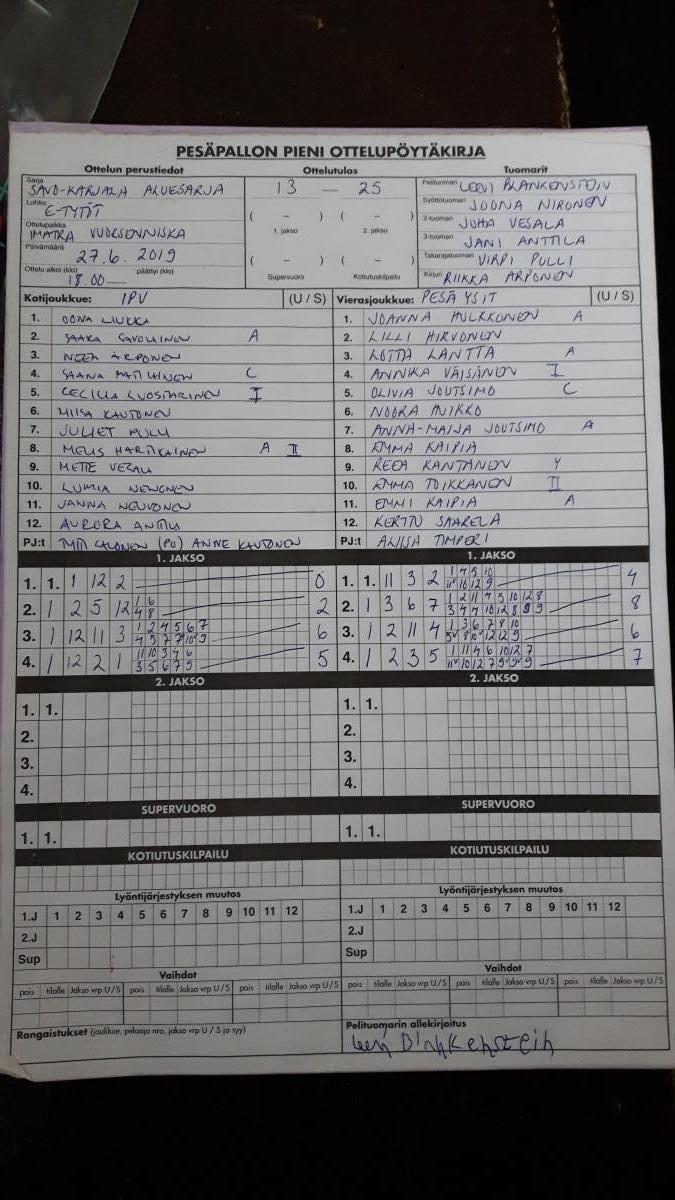 PESÄPALLON PIENI OTTELUPÖYTÄKIRJA
Ottelun perustiedot Ottelutulos Tuomarit
Sarja SAVO-KARJALA ALUESARJA 13 — 25 Pelituomari LEENI BLANKENSTEIN
Lohko E-TYTÖT ( – ) ( – ) Syöttötuomari JOONA NIRONEN
Ottelupaikka IMATRA VUOKSENNISKA 1. jakso 2. jakso 2-tuomari JUHA VESALA
Päivämäärä 27.6. 2019 ( – ) ( – ) 3-tuomari JANI ANTTILA
Ottelu alkoi (klo) 18.00 — päättyi (klo) Supervuoro Kotiutuskilpailu Takarajatuomari VIRPI PULLI
Kirjuri RIIKKA ARPONEN
Kotijoukkue: IPV (U / S) Vierasjoukkue: PESÄ YSIT (U / S)
1. OONA LIUKKA 1. JOANNA HULKKONEN A
2. SAAKA SAVOLAINEN A 2. LILLI HIRVONEN
3. NEEA ARPONEN 3. LOTTA LANTTA A
4. SAANA MATIKAINEN C 4. ANNIKA VÄISÄNEN I
5. CECILIA LUOSTARINEN I 5. OLIVIA JOUTSIMO C
6. MIISA KAUTONEN 6. NOORA HUIKKO
7. JULIET PULLI 7. ANNA-MAIJA JOUTSIMO A
8. MELIS HARTIKAINEN A II 8. EMMA KAIPIA
9. METTE VESALA 9. REEA KANTANEN Y
10. LUMIA NEVONEN 10. EMMA TOIKKANEN II
11. JANNA NEUVONEN 11. EMMI KAIPIA A
12. AURORA ANTTILA 12. KERTTU SAARELA
PJ:t TYTTI SALONEN (PJ) ANNE KAUTONEN PJ:t ALIISA TIMPERI
1. JAKSO 1. JAKSO
1. 1. 1 12 2 0 1. 1. 11 3 2 1 4 5 10 11 10 12 9 4
2. 1 2 5 12 1 6 4 8 2 2. 1 3 6 7 1 2 11 4 5 10 12 8 3 4 7 10 12 8 9 9 8
3. 1 12 11 3 1 2 4 5 6 7 4 5 7 7 10 9 6 3. 1 2 11 4 1 3 6 7 8 10 5 8 10 12 12 9 6
4. 1 12 2 1 11 10 3 4 6 3 5 6 7 9 5 4. 1 2 3 5 1 11 4 6 10 12 7 11 10 12 7 9 9 9 7
2. JAKSO 2. JAKSO
1. 1. 1. 1.
2. 2.
3. 3.
4. 4.
SUPERVUORO SUPERVUORO
1. 1. 1. 1.
KOTIUTUSKILPAILU KOTIUTUSKILPAILU
Lyöntijärjestyksen muutos Lyöntijärjestyksen muutos
1.J 1 2 3 4 5 6 7 8 9 10 11 12 1.J 1 2 3 4 5 6 7 8 9 10 11 12
2.J 2.J
Sup Sup
Vaihdot Vaihdot
pois tilalle Jakso vrp U / S pois tilalle Jakso vrp U / S pois tilalle Jakso vrp U / S pois tilalle Jakso vrp U / S pois tilalle Jakso vrp U / S pois tilalle Jakso vrp U / S
Rangaistukset (joukkue, pelaaja nro, jakso vrp U / S ja syy) Pelituomarin allekirjoitus